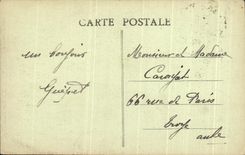 CARTE POSTALE
un bonjour
Monsieur et Madame
66 rue de Paris
Troyes
Aube